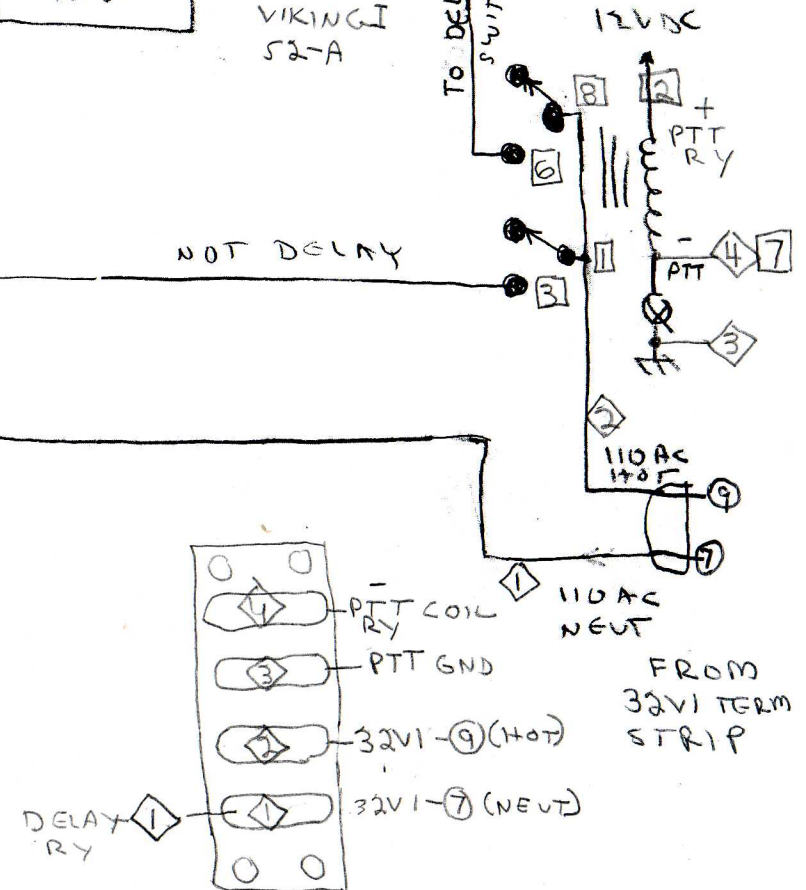 VIKING I
52-A
TO DEL
SWIT
12VDC
8
2
+
PTT
RY
6
NOT DELAY
1
-
PTT
4
7
3
3
2
110 AC
HOT
9
7
1
110 AC
NEUT
FROM
32V1 TERM
STRIP
4
-
PTT COIL
RY
3
PTT GND
2
32V1-9 (HOT)
DELAY
RY
1
1
32V1-7 (NEUT)